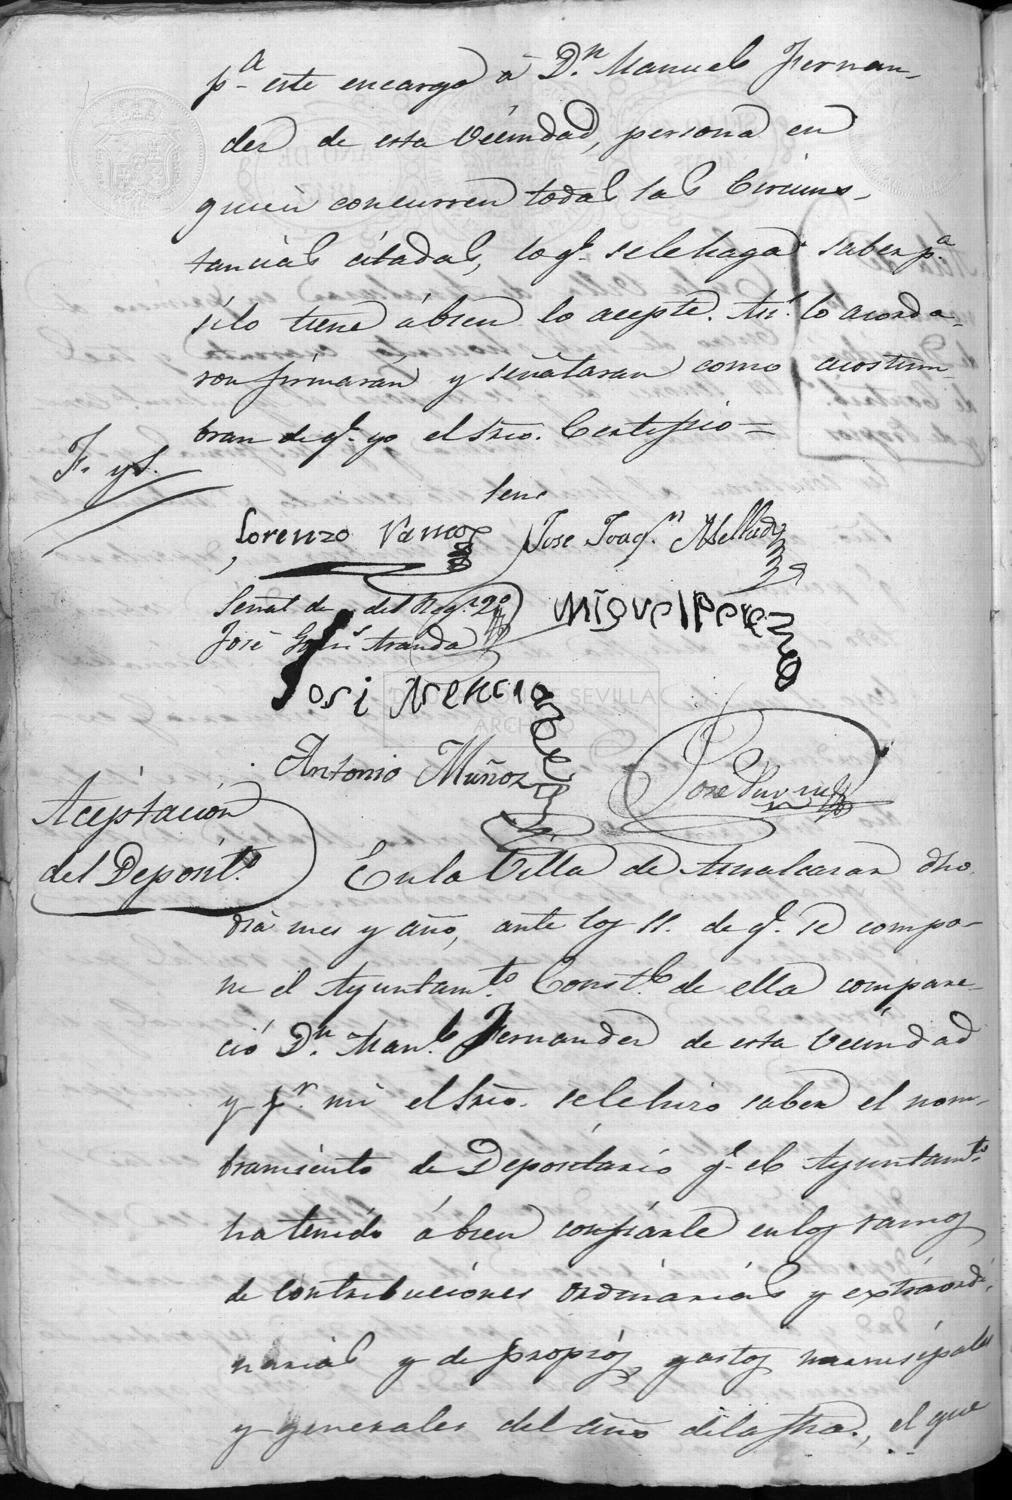 pª este encargo á Dn. Manuel Fernan-
dez de esta Vecindad, persona en
quien concurren todas las Circuns-
tancias citadas, lo q.e se le haga saber p.ª
si lo tiene á bien lo acepte. Así lo acorda-
ron firmaran y señalaran como acostum-
bran de q.e yo el Srio. Certifico =
F. y S.
Lorenzo
Jose Joaq.n
Señal de del Reg.r 2º
José
Miguel Perez
Antonio Muñoz
Aceptacion
del Deposit.º
En la Villa de dho
dia mes y año, ante los SS. de q.e se compo-
ne el Ayuntam.to Const.l de ella compare-
ció Dn. Man.l Fernandez de esta Vecindad
y p.r mi el Srio. se le hizo saber el nom-
bramiento de Depositario q.e el Ayuntam.to
ha tenido á bien confiarle en los ramos
de contribuciones ordinarias y extraordi-
narias y de propios, gastos municipales
y generales del año de la fha., el que
DIPUTACIÓN DE SEVILLA
ARCHIVO